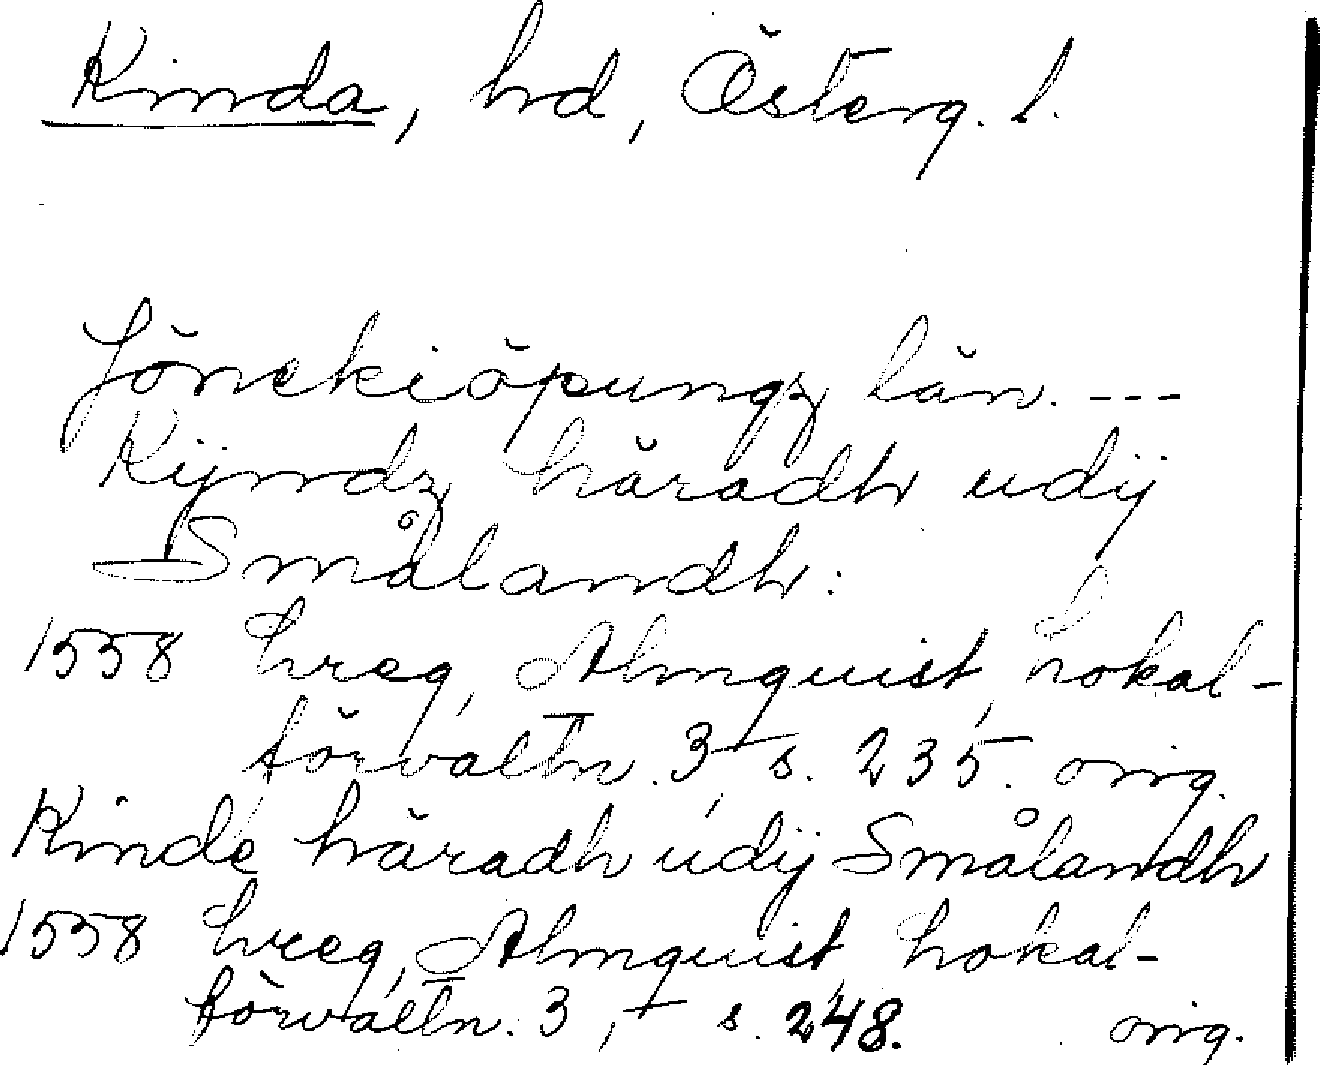 Kinda, hd, Österg. l.
Jönekiöpungz län. ---
Kijndz häradh udij
Smålandh:
1558 hreg, Almquist, Lokal-
förvaltn. 3, s. 235. orig.
Kinde häradh udij Smålandh
1558 hreg, Almquist, Lokal-
förvaltn. 3, s. 248. orig.